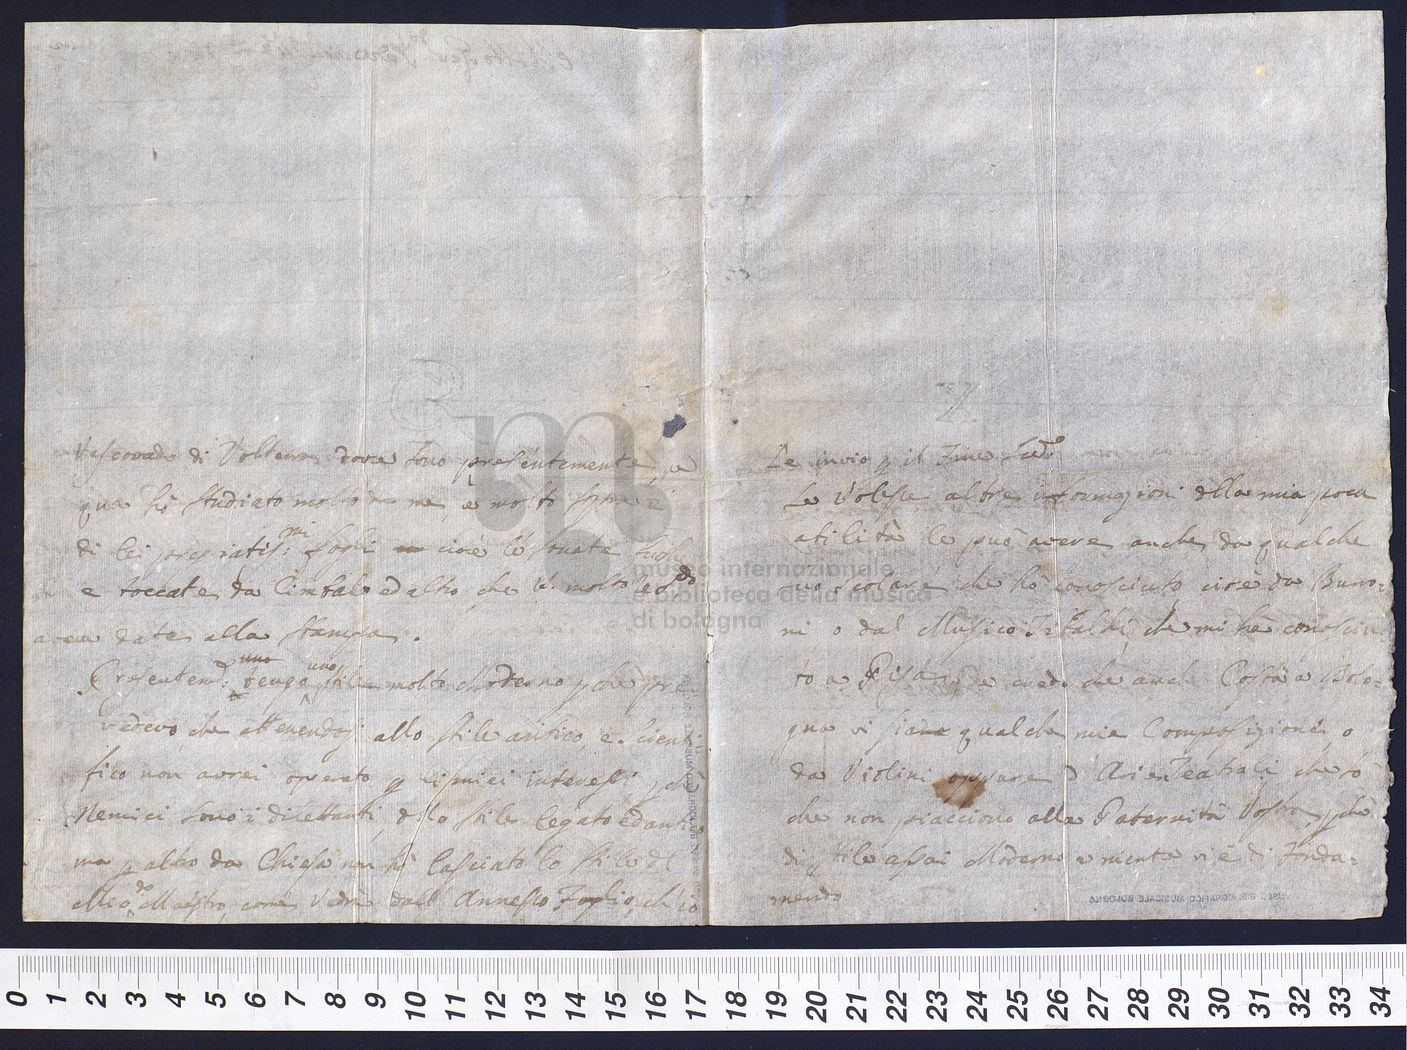 Vescovado di Volterra dove sono presentemente, e
qua hò studiato molto da me, e molto sopra i
di lei pregiatis.mi fogli cioè le sonate Fughe
e toccate da Cimbalo ed altro, che V. molto Rev.do
aveva date alla stampa.
Presentem.e tengo uno stile molto Moderno p che pre
vedevo, che attenendosi allo stile antico, e scienti
fico non avrei operato p i miei interessi, p chè
Nemici sono i dilettanti dello stile legato ed antico
ma p altro da Chiesa non hò lasciato lo stile del
Mio Maestro, come vedrà dall' Annesso Foglio, ch' io
Le invio p il
Se volesse altre informazioni della mia poca
abilità le può avere anche da qualche
suo scolare che hò conosciuto cioè da Burro-
ni o dal Musico Tibaldi, che mi hà conosciu
to a Pisa, e credo che anche Costà a Bolo-
gna vi sia qualche mia Composizione, o
da Violini oppure d' Arie Teatrali che sò
che non piacciono alla Paternità Vostra, p chè
di stile assai Moderno e niente vi è di fonda-
mendo
museo internazionale
e biblioteca della musica
di bologna
0 1 2 3 4 5 6 7 8 9 10 11 12 13 14 15 16 17 18 19 20 21 22 23 24 25 26 27 28 29 30 31 32 33 34